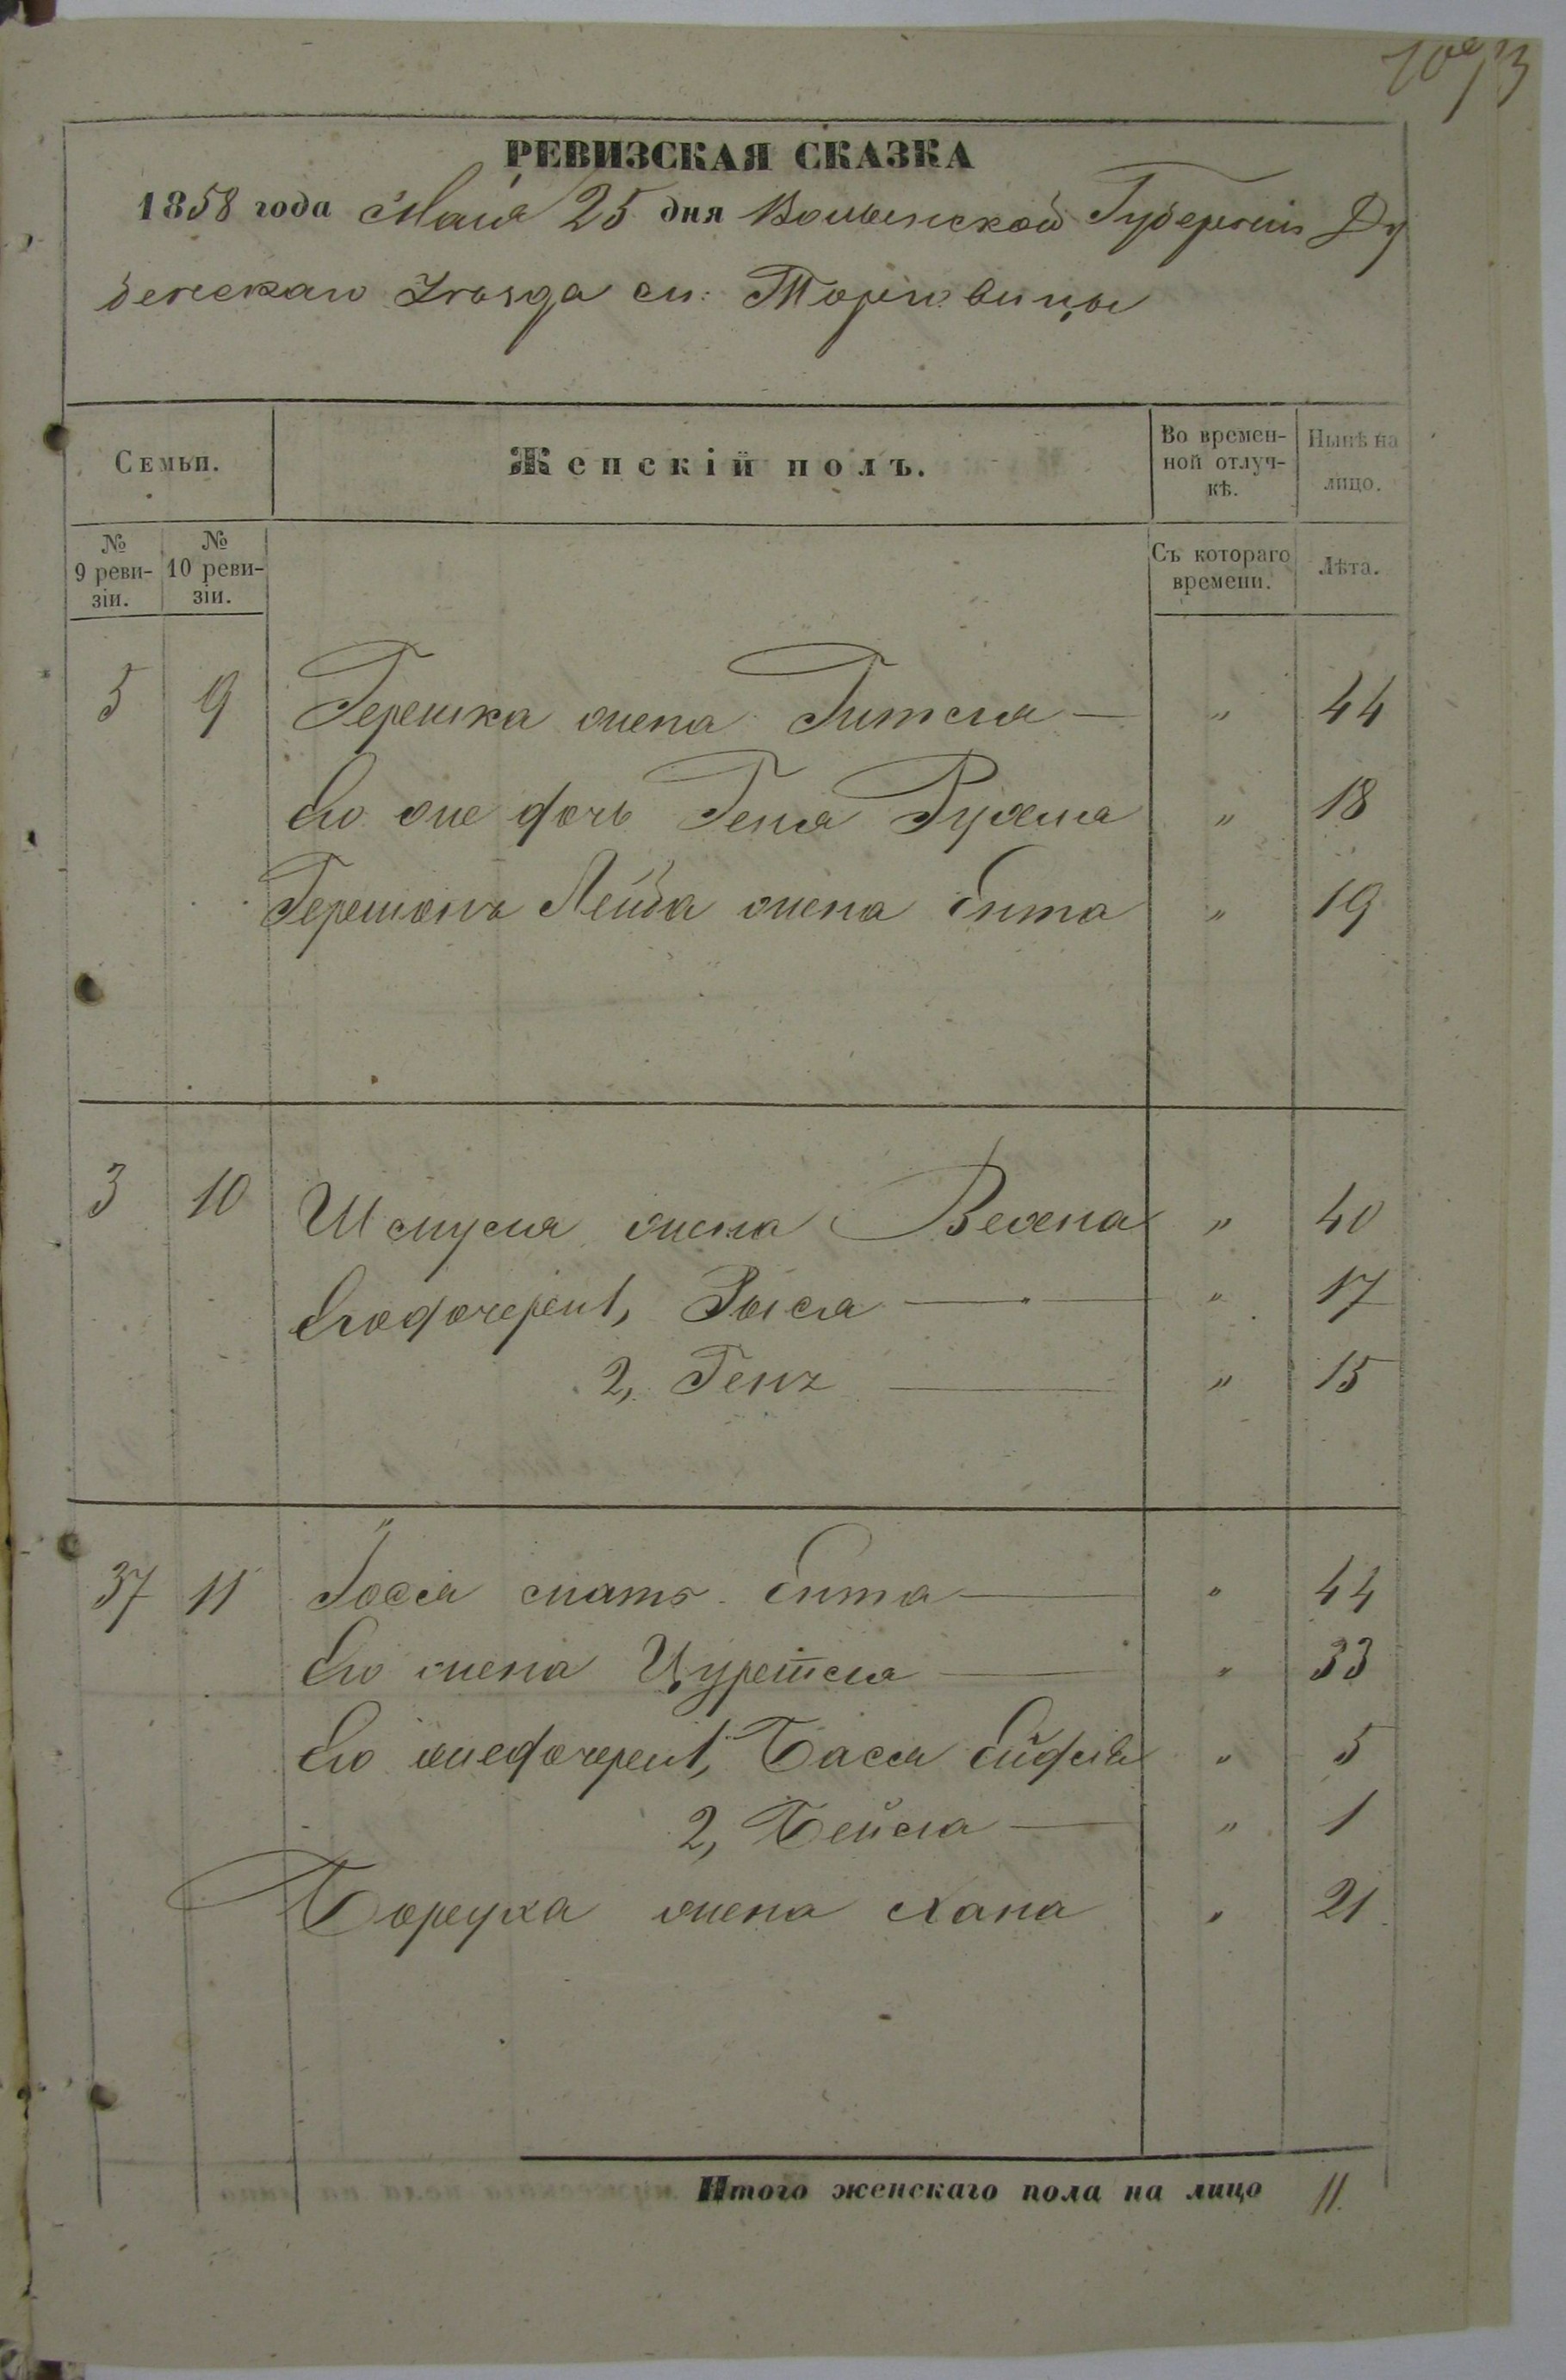 РЕВИЗСКАЯ СКАЗКА
1858 года Мая 25 дня Волынской Губернiи Ду
бенскаго Уѣзда м: Торговицы
Семьи.
Женскiй полъ.
Во времен-
ной отлуч-
кѣ.
Нынѣ на
лицо.
№
9 реви-
зiи.
№
10 реви-
зiи.
Съ котораго
времени.
Лѣта.
5 9 Гершка жена Гитля — " 44
Его же дочь Геня Рухля " 18
Гершонъ Лейба жена Ента " 19
3 10 Шмуля жена " 40
Его дочери 1, Рысля — " 17
2, Геня — " 15
37 11 Iося мать Ента — " 44
Его жена Цуретля — " 33
Его же дочери 1, Бася Ейдля " 5
2, Бейла — " 1
Борука жена Хана " 21
Итого женскаго пола на лицо 11.